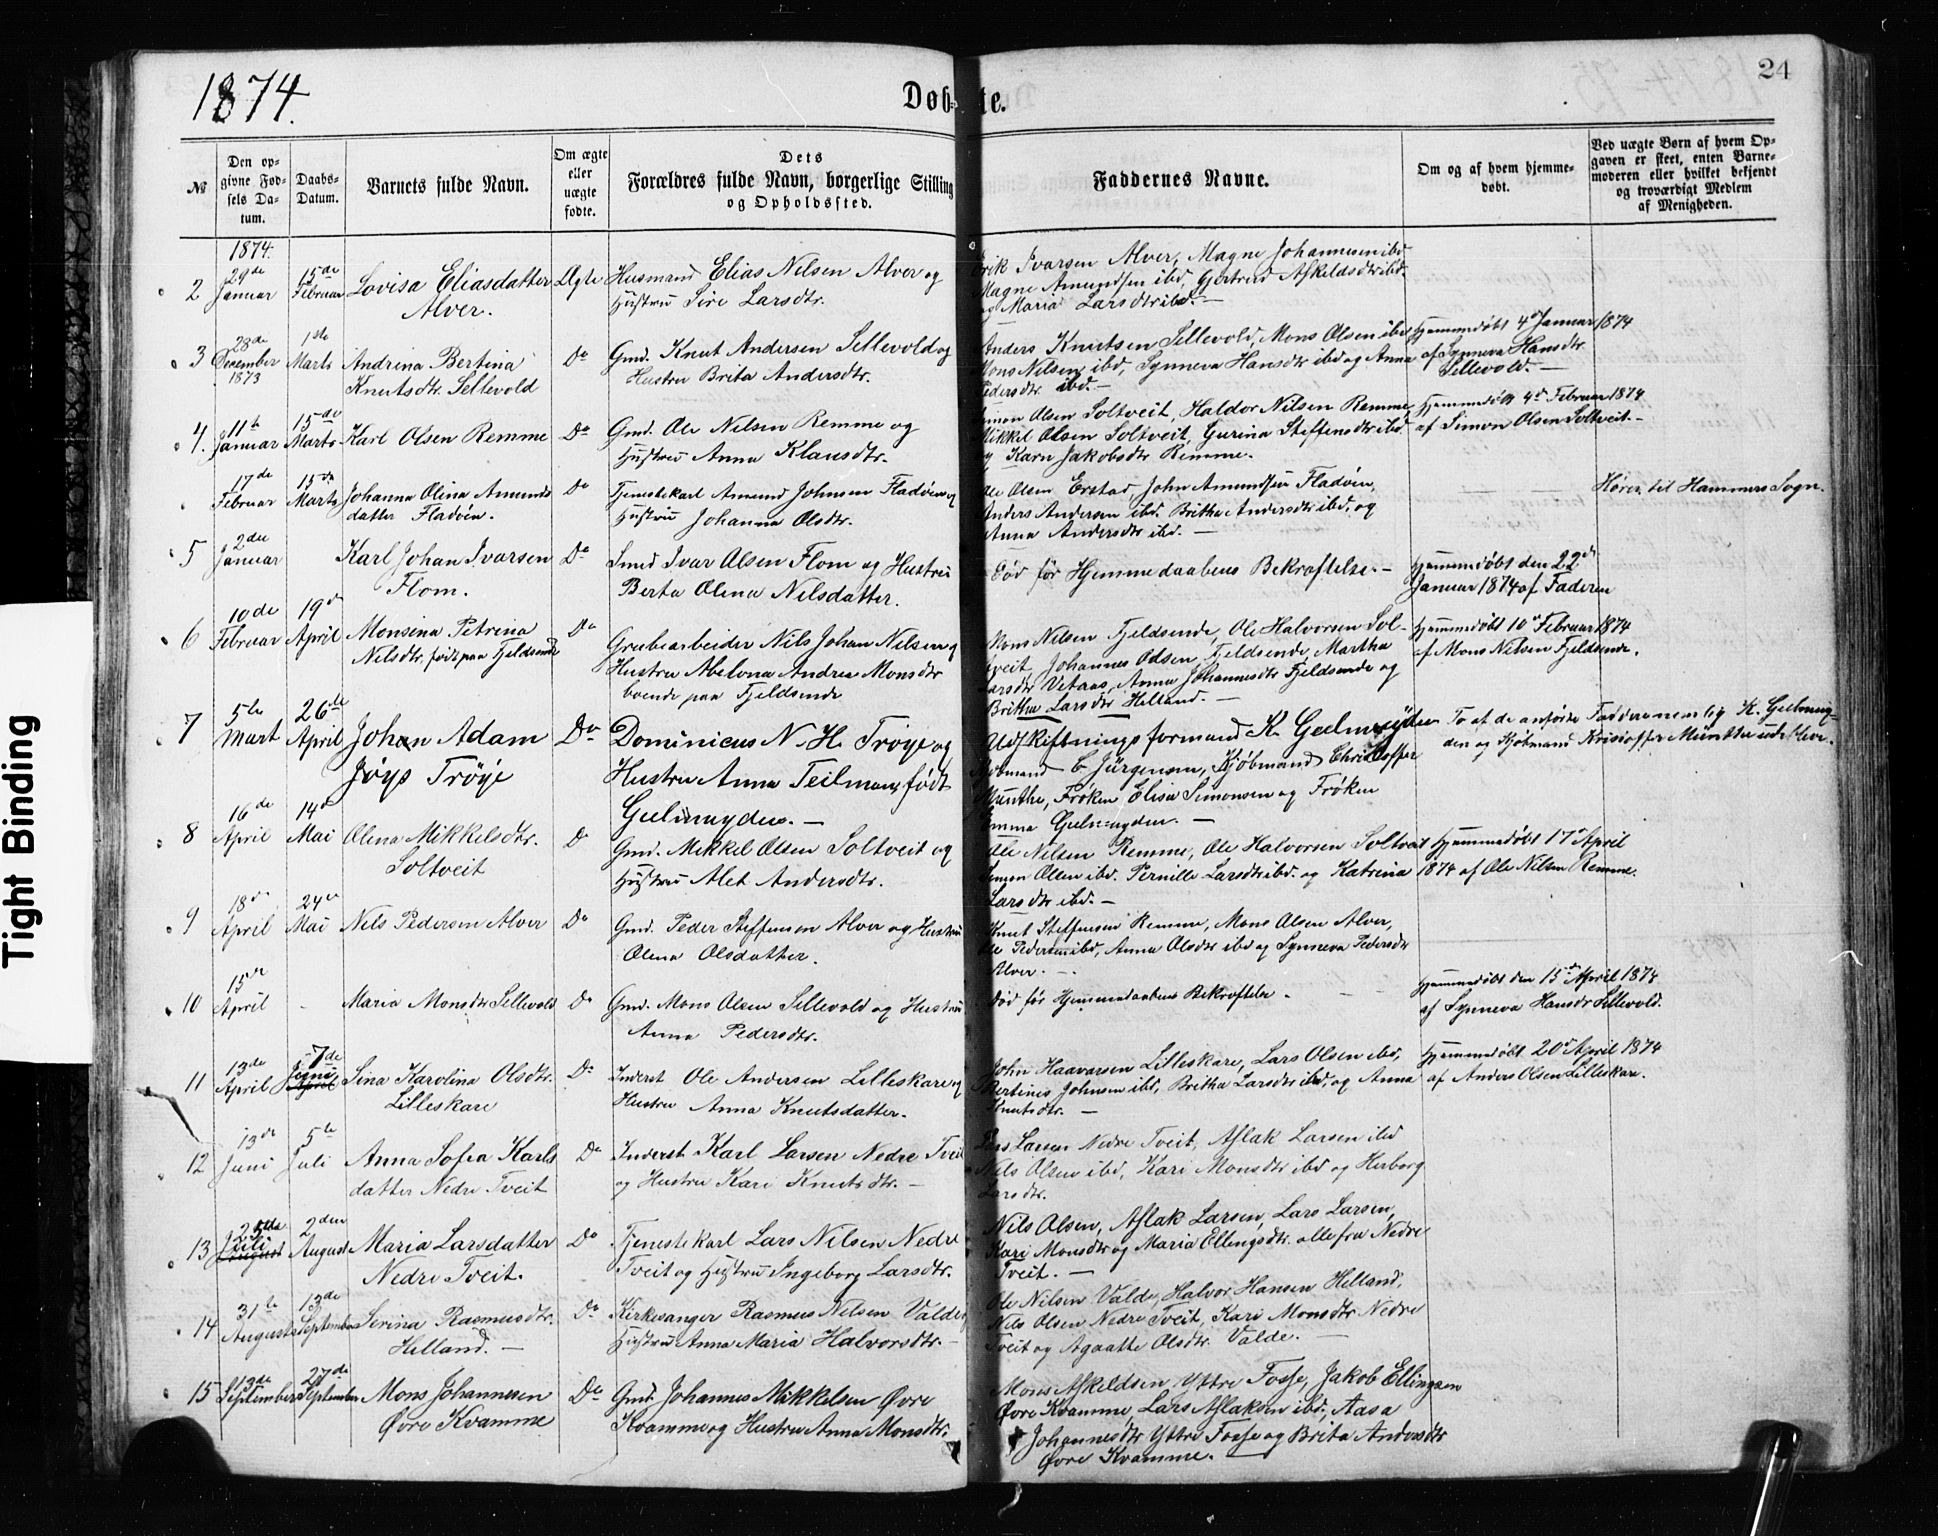 1874.
Døb-
te.
24
Tight Binding
№
Den op-
givne Fød-
sels Da-
tum.
Daabs-
Datum.
Barnets fulde Navn.
Om ægte
eller
uægte
fødte.
Dets
Forældres fulde Navn, borgerlige Stilling
og Opholdssted.
Faddernes Navne.
Om og af hvem hjemme-
døbt.
Ved uægte Børn af hvem Op-
gaven er skeet, enten Barne-
moderen eller hvilket bekjendt
og troværdigt Medlem
af Menigheden.
1874.
2
29de
Januar
15de
Februar
Lovisa Eliasdatter
Alver.
Ægte
Husmand Elias Nilsen Alver og
Hustru Siri Larsdtr.
Erik Ivarsen Alver, Magne Johannesen ibd
Magne Amundsen ibd, Gjertrud Askildsdtr ibd.
og Maria Larsdtr ibd. —
3
28de
December
1873
1ste
Marts
Andrina Bertina
Knutsdtr. Sellevold
Do
Gmd. Knut Andersen Sellevold og
Hustru Brita Andersdtr.
Anders Knutsen Sellevold, Mons Olsen ibd
Mons Nilsen ibd, Synneva Hansdtr ibd og Anna
Pedersdtr ibd. —
Hjemmedøbt 4de Januar 1874
af Synneva Hansdtr
Sellevold. —
4.
11te
Januar
15de
Marts
Karl Olsen Remme
Do
Gmd. Ole Nilsen Remme og
Hustru Anna Klausdtr.
Simon Olsen Soltveit, Haldor Nilsen Remme,
Mikkel Olsen Soltveit, Gurina Steffensdtr ibd
og Karn Jakobsdtr Remme. —
Hjemmedøbt 4de Februar 1874
af Simon Olsen Soltveit. —
17de
Februar
15de
Marts
Johanna Olina Amunds
datter Fladøen.
Do
Tjenestekarl Amund Johnsen Fladøen og
Hustru Johanna Olsdtr.
Ole Olsen Erstad, John Amundsen Fladøen,
Anders Andersen ibd. Britha Andersdtr ibd, og
Anna Andersdtr ibd. —
Hører til Hammers Sogn.
5
2den
Januar
Karl Johan Ivarsen
Flom.
Do
Smed Ivar Olsen Flom og Hustru
Berta Olena Nilsdatter.
Død før Hjemmedaabens Bekræftelse. —
Hjemmedøbt den 22de
Januar 1874 af Faderen
6
10de
Februar
19de
April
Monsina Petrina
Nilsdtr, født paa Fjeldsende
Do
Grubearbeider Nils Johan Nilsen og
Hustru Abelona Andrea Monsdtr
boende paa Fjeldsende
Mons Nilsen Fjeldsende, Ole Halvorsen Sol-
tveit, Johannes Odsen Fjeldsende, Martha
Larsdtr Vetaas, Anna Johannesdtr Fjeldsende og
Britha Larsdtr Helland. —
Hjemmedøbt 10de Februar 1874
af Mons Nilsen Fjeldsende.
7
5te
Mart
26de
April
Johan Adam
Jøys Trøye
Do
Dominicus N. H. Trøye og
Hustru Anna Teilmann født
Geelmuyden. —
Udskiftningsformand K. Geelmuyden
Kjøbmand E Jürgensen, Kjøbmand Christoffer
Munthe, Frøken Elisa Simonsen og Frøken
Emma Geelmuyden. —
To af de anførte Faddere nemlig K. Geelmuy-
den og Kjøbmand Kristoffer Munthe udebleve.
8
16de
April
14de
Mai
Olena Mikkelsdtr.
Soltveit
Do
Gmd. Mikkel Olsen Soltveit og
Hustru Alet Andersdtr.
Ole Nilsen Remme, Ole Halvorsen Soltveit
Simon Olsen ibd. Pernille Larsdtr ibd. og Katrina
Larsdtr ibd. —
Hjemmedøbt 17de April
1874 af Ole Nilsen Remme.
9
18de
April
24de
Mai
Nils Pedersen Alver
Do
Gmd. Peder Steffensen Alver og Hustru
Olena Olsdatter.
Knut Steffensen Remme, Mons Olsen Alver,
Ole Pedersen ibd, Anna Olsdtr ibd og Synneva Pedersdtr
Alver. —
10
15de
April
-
Maria Monsdtr Sellevold
Do
Gmd. Mons Olsen Sellevold og Hustru
Anna Pedersdtr.
Død før Hjemmedaabens Bekræftelse —
Hjemmedøbt den 15de April 1874
af Synneva Hansdtr Sellevold.
11
13de
April
7de
Juni
April
Sina Karolina Olsdtr.
Lilleskare
Do
Inderst Ole Andersen Lilleskare og
Hustru Anna Knutsdatter.
John Haavarsen Lilleskare, Lars Olsen ibd,
Bertines Johnsen ibd, Britha Larsdtr ibd, og Anna
Knutsdtr. —
Hjemmedøbt 20de April 1874
af Anders Olsen Lilleskare.
12
13de
Juni
5te
Juli
Anna Sofia Karls
datter Nedre Tveit
Do
Inderst Karl Larsen Nedre Tveit
og Hustru Kari Knutsdtr. —
Lars Larsen Nedre Tveit, Aslak Larsen ibd
Nils Olsen ibd, Kari Monsdtr ibd og Herborg
Larsdtr.
13
Juli
August
2den
August
Maria Larsdatter
Nedre Tveit.
Do
Tjenestekarl Lars Nilsen Nedre
Tveit og Hustru Ingeborg Larsdtr.
Nils Olsen, Aslak Larsen, Lars Larsen,
Kari Monsdtr og Maria Ellingsdtr. alle fra Nedre
Tveit. —
14
31te
August
13de
September
Serina Rasmusdtr.
Helland. —
Do
Kirkesanger Rasmus Nilsen Valde og
Hustru Anna Maria Halvorsdtr. —
Ole Nilsen Valde, Halvor Hansen Helland,
Nils Olsen Nedre Tveit, Kari Monsdtr Nedre
Tveit og Agaatte Olsdtr Valde. —
15
13de
September
27de
September
Mons Johannesen
Øvre Kvamme
Do
Gmd Johannes Mikkelsen Øvre
Kvamme og Hustru Anna Monsdtr.
Mons Askildsen Yttre Fosse, Jakob Ellingsen
Øvre Kvamme, Lars Aslaksen ibd, Aasa
Johannesdtr Yttre Fosse og Brita Andersdtr
Øvre Kvamme. —